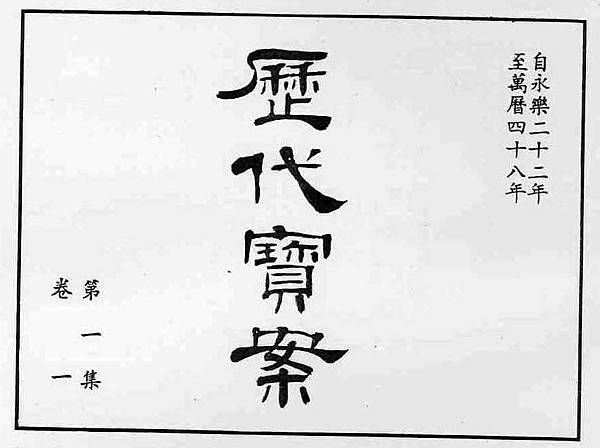 自永樂二十二年
至萬曆四十八年
歷代寶案
第一集
卷一